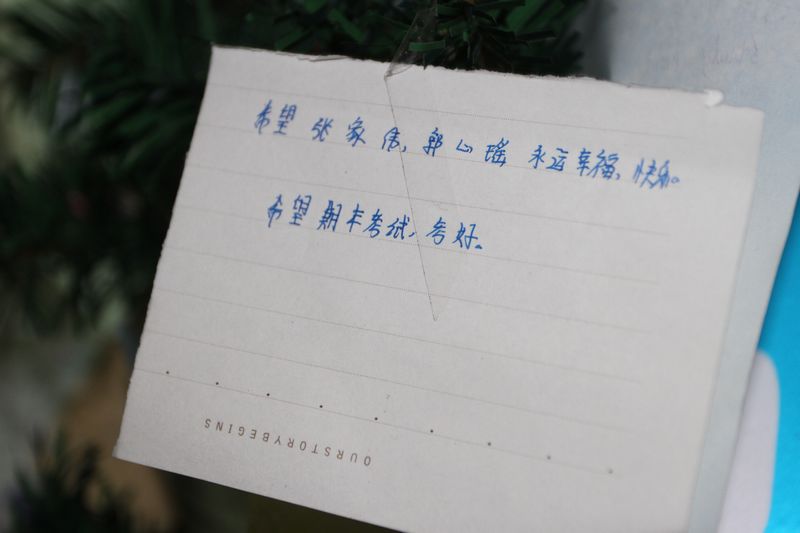 希望 张家伟, 郭心瑶 永运幸福、快乐。
希望期末考试, 考好。
OURSTORYBEGINS